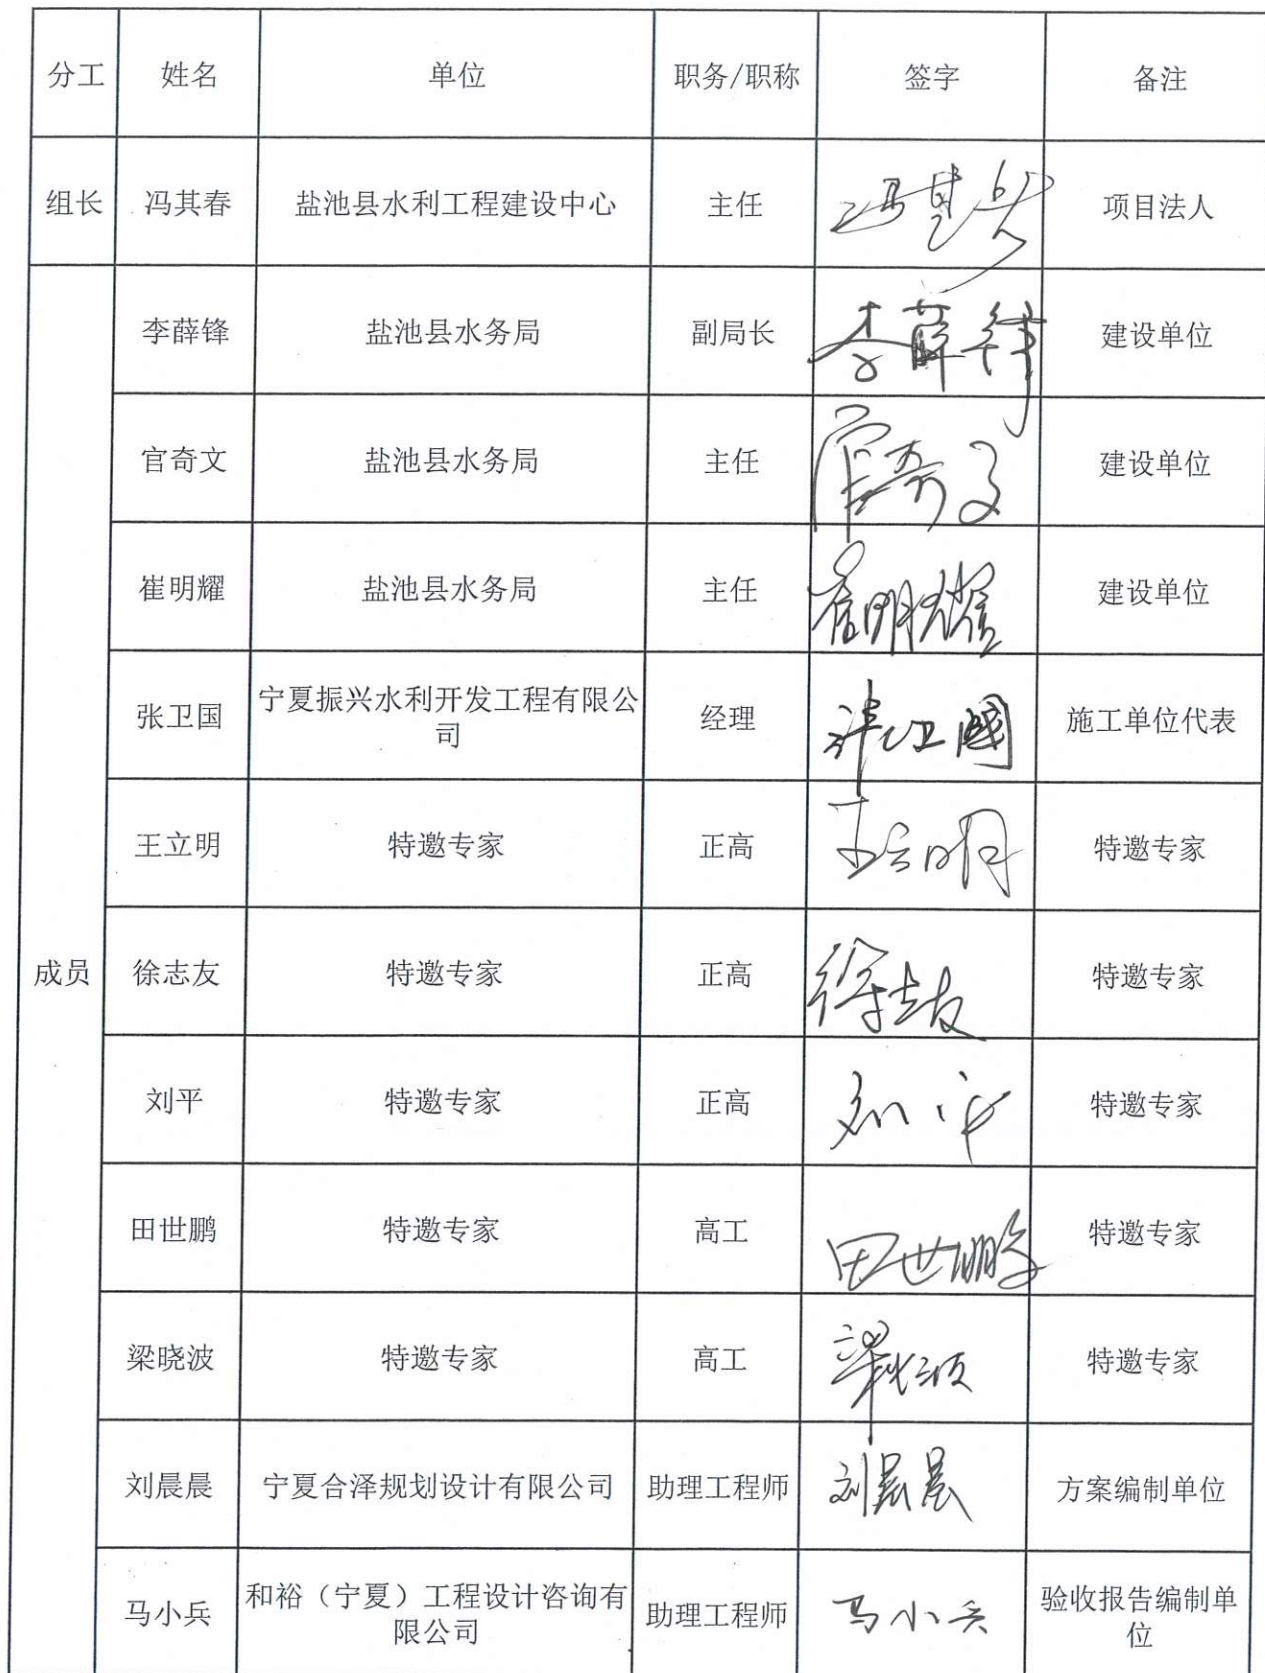 分工 姓名 单位 职务/职称 签字 备注
组长 冯其春 盐池县水利工程建设中心 主任 冯其春 项目法人
李薛锋 盐池县水务局 副局长 李薛锋 建设单位
官奇文 盐池县水务局 主任 官奇文 建设单位
崔明耀 盐池县水务局 主任 崔明耀 建设单位
张卫国 宁夏振兴水利开发工程有限公
司 经理 张卫國 施工单位代表
王立明 特邀专家 正高 王立明 特邀专家
成员 徐志友 特邀专家 正高 徐志友 特邀专家
刘平 特邀专家 正高 刘平 特邀专家
田世鹏 特邀专家 高工 田世鹏 特邀专家
梁晓波 特邀专家 高工 特邀专家
刘晨晨 宁夏合泽规划设计有限公司 助理工程师 刘晨晨 方案编制单位
马小兵 和裕（宁夏）工程设计咨询有
限公司 助理工程师 马小兵 验收报告编制单
位